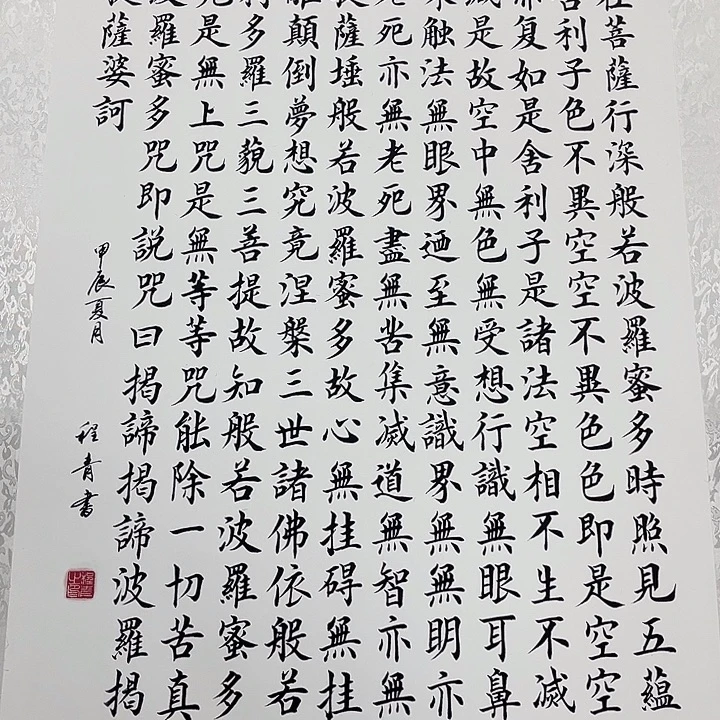 在菩薩行深般若波羅蜜多時照見五蘊
舍利子色不異空空不異色色即是空空
亦复如是舍利子是諸法空相不生不滅
滅是故空中無色無受想行識無眼耳鼻
味触法無眼界迺至無意識界無無明亦
老死亦無老死盡無苦集滅道無智亦無
提薩埵般若波羅蜜多故心無挂碍無挂
離顛倒夢想究竟涅槃三世諸佛依般若
耨多羅三藐三菩提故知般若波羅蜜多
咒是無上咒是無等等咒能除一切苦真
波羅蜜多咒即說咒曰揭諦揭諦波羅揭
提薩婆訶
甲辰夏月
程青書